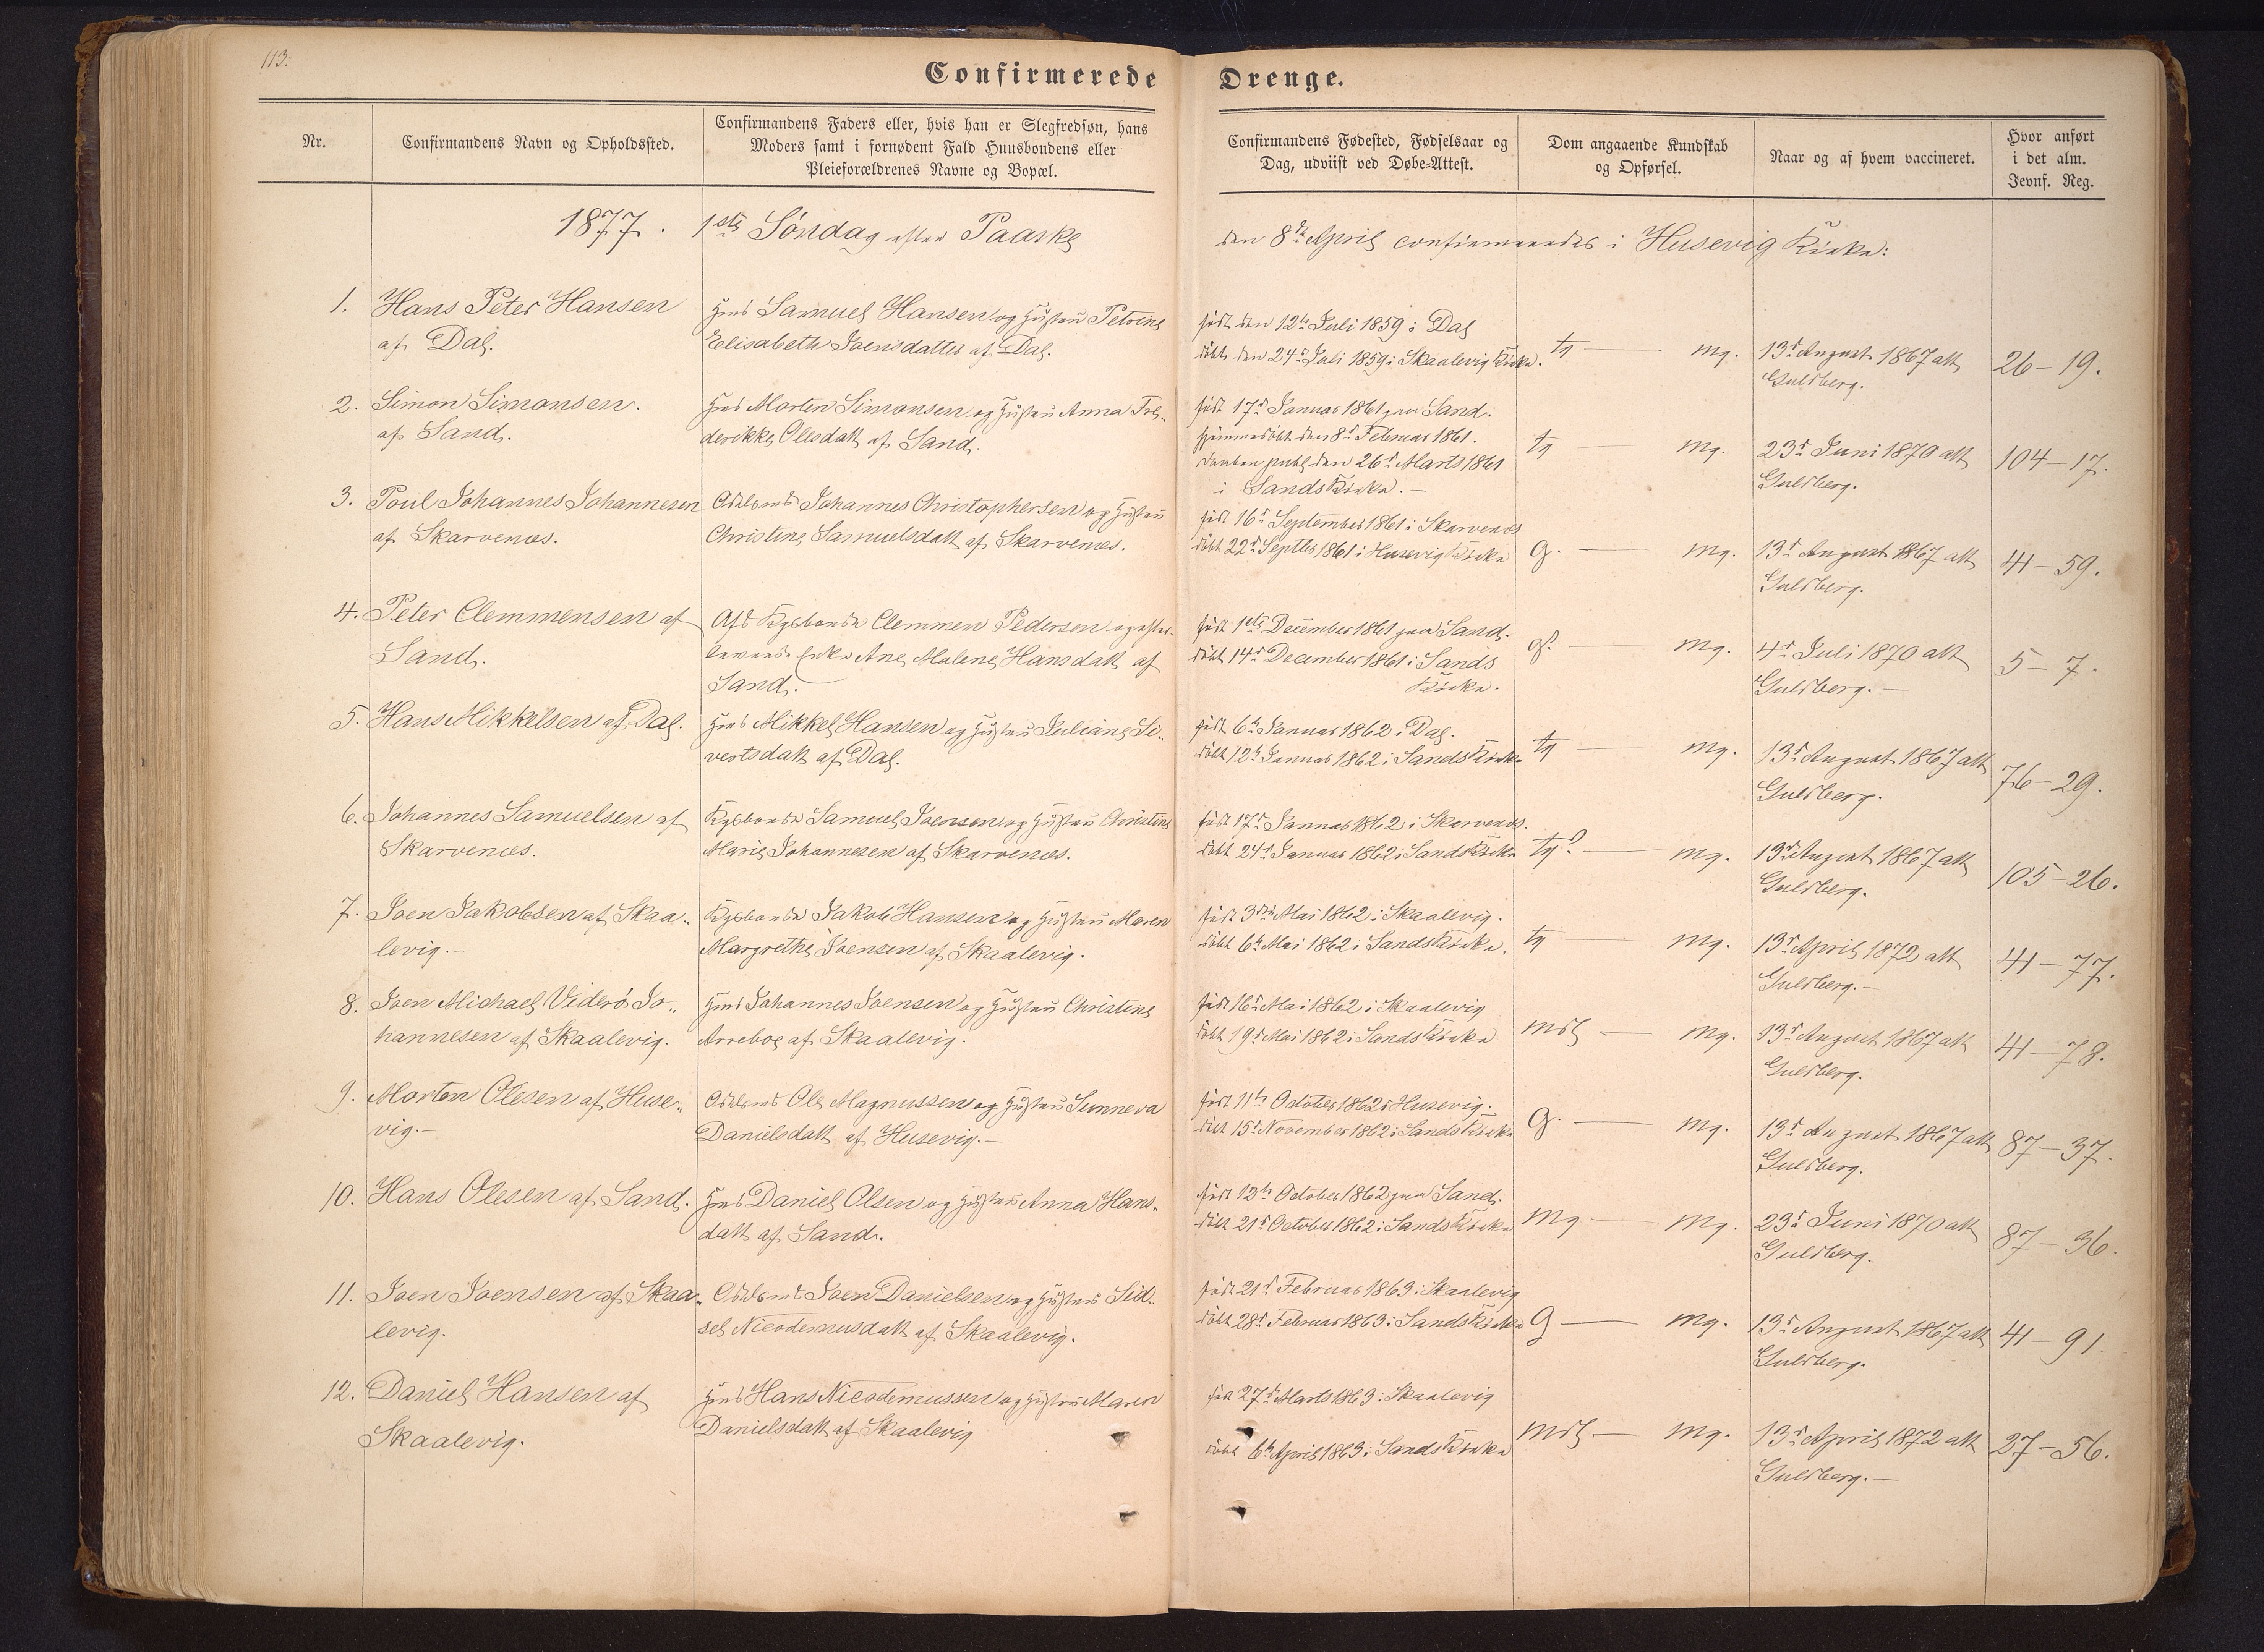 113.
Confirmerede Drenge.
Nr.
Confirmandens Navn og Opholdssted.
Confirmandens Faders eller, hvis han er Slegfredsøn, hans
Moders samt i fornødent Fald Huusbondens eller
Pleieforældrenes Navne og Bopæl.
Confirmandens Fødested, Fødselsaar og
Dag, udviist ved Døbe-Attest.
Dom angaaende Kundskab
og Opførsel.
Naar og af hvem vaccineret.
Hvor anført
i det alm.
Jevnf. Reg.
1877. 1ste Søndag efter Paaske den 8de April confirmeredes i Husevig Kirke:
1. Hans Peter Hansen
af Dal.
Hmd Samuel Hansen og Hustru Petrine
Elisabeth Joensdatter af Dal.
født den 12te Juli 1859 i Dal
døbt den 24de Juli 1859 i Skaalevig Kirke.
tg — mg.
13de August 1867 att
Guldberg.
26-19.
2. Simon Simonsen.
af Sand.
Hmd Morten Simonsen og Hustru Anna Fre-
derikke Olesdatt af Sand.
født 17de Januar 1861 paa Sand.
hjemmedøbt den 8de Februar 1861.
Daaben publ. den 26de Marts 1861
i Sands Kirke. -
tg mg.
23de Juni 1870 att
Guldberg.
104-17.
3. Poul Johannes Johannesen
af Skarvenæs.
Odelsmd Johannes Christophersen og Hustru
Christine Samuelsdatt af Skarvenæs.
født 16de September 1861 i Skarvenæs
døbt 22de Septbr 1861 i Husevig Kirke
g. — mg.
13de August 1867 att
Guldberg.
41-59.
4. Peter Clemmensen af
Sand.
Afd Kgsbonde Clemmen Pedersen og efter-
levende Enke Ane Malene Hansdatt af
Sand.
født 1ste December 1861 paa Sand.
døbt 14de December 1861 i Sands
Kirke.
g? — mg.
4de Juli 1870 att
Guldberg. -
5-7.
5. Hans Mikkelsen af Dal.
Hmd Mikkel Hansen og Hustru Juliane Si-
vertsdatt af Dal.
født 6te Januar 1862 i Dal.
døbt 12te Januar 1862 i Sands Kirke
tg — mg.
13de August 1867 att
Guldberg.
76-29.
6. Johannes Samuelsen af
Skarvenæs.
Kgsbonde Samuel Joensen og Hustru Christine
Marie Johannesen af Skarvenæs.
født 17de Januar 1862 i Skarvenæs.
døbt 24de Januar 1862 i Sands Kirke
tg? — mg.
13de August 1867 att
Guldberg.
105-26.
7. Joen Jakobsen af Skaa-
levig. -
Kgsbonde Jakob Hansen og Hustru Maren
Margrethe Joensen af Skaalevig.
født 3die Mai 1862 i Skaalevig.
døbt 6te Mai 1862 i Sands Kirke.
tg — mg.
13de April 1872 att
Guldberg. -
41-77.
8. Joen Michael Viderø Jo-
hannesen af Skaalevig.
Hmd Johannes Joensen og Hustru Christine
Arreboe af Skaalevig.
født 16de Mai 1862 i Skaalevig
døbt 19de Mai 1862 i Sands Kirke
mdl — mg.
13de August 1867 att
Guldberg.
41-78.
9. Morten Olesen af Huse-
vig. -
Odelsmd Ole Magnussen og Hustru Sunneva
Danielsdatt af Husevig. -
født 11te October 1862 i Husevig.
døbt 15de November 1862 i Sands Kirke
g. — mg.
13de August 1867 att
Guldberg.
87-37.
10. Hans Olesen af Sand.
Hmd Daniel Olsen og Hustru Anna Hans-
datt af Sand.
født 12te October 1862 paa Sand.
døbt 21de October 1862 i Sands Kirke
mg — mg.
23de Juni 1870 att
Guldberg.
87-36.
11. Joen Joensen af Skaa-
levig.
Odelsmd Joen Danielsen og Hustru Sid-
sel Nicodemusdatt af Skaalevig.
født 21de Februar 1863 i Skaalevig
døbt 28de Februar 1863 i Sands Kirke
g — mg.
13de August 1867 att
Guldberg.
41-91.
12. Daniel Hansen af
Skaalevig.
Hmd Hans Nicodemussen og Hustru Maren
Danielsdatt af Skaalevig
født 27de Marts 1863 i Skaalevig
døbt 6te April 1863 i Sands Kirke
mdl — mg.
13de April 1872 att
Guldberg. -
27-56.